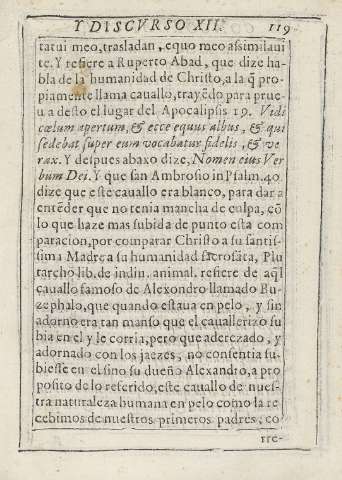 Y DISCVRSO XII. 119
tatui meo, trasladan, equo meo assimilaui
te. Y refiere a Ruperto Abad, que dize ha-
bla de la humanidad de Christo, a la q̃ pro
piamente llama cauallo, trayẽdo para prue
ua desto el lugar del Apocalipsis 19. Vidi
cœlum apertum, & ecce equus albus, & qui
sedebat super eum vocabatur fidelis, & ve
rax. Y despues abaxo dize, Nomen eius Ver
bum Dei. Y que san Ambrosio in Psalm. 40.
dize que este cauallo era blanco, para dar a
entẽder que no tenia mancha de culpa, cõ
lo que haze mas subida de punto esta com
paracion, por comparar Christo a su santis-
sima Madre a su humanidad sacrosãta, Plu
tarcho lib. de indin. animal. refiere de aq̃l
cauallo famoso de Alexondro llamado Bu-
zephalo, que quando estaua en pelo, y sin
adorno era tan manso que el cauallerizo su
bia en el y le corria, pero que aderezado, y
adornado con los jaezes, no consentia su-
biesse en el sino su dueño Alexandro, a pro
posito de lo referido, este cauallo de nues-
tra naturaleza humana en pelo como la re
cebimos de nuestros primeros padres, co
rre-